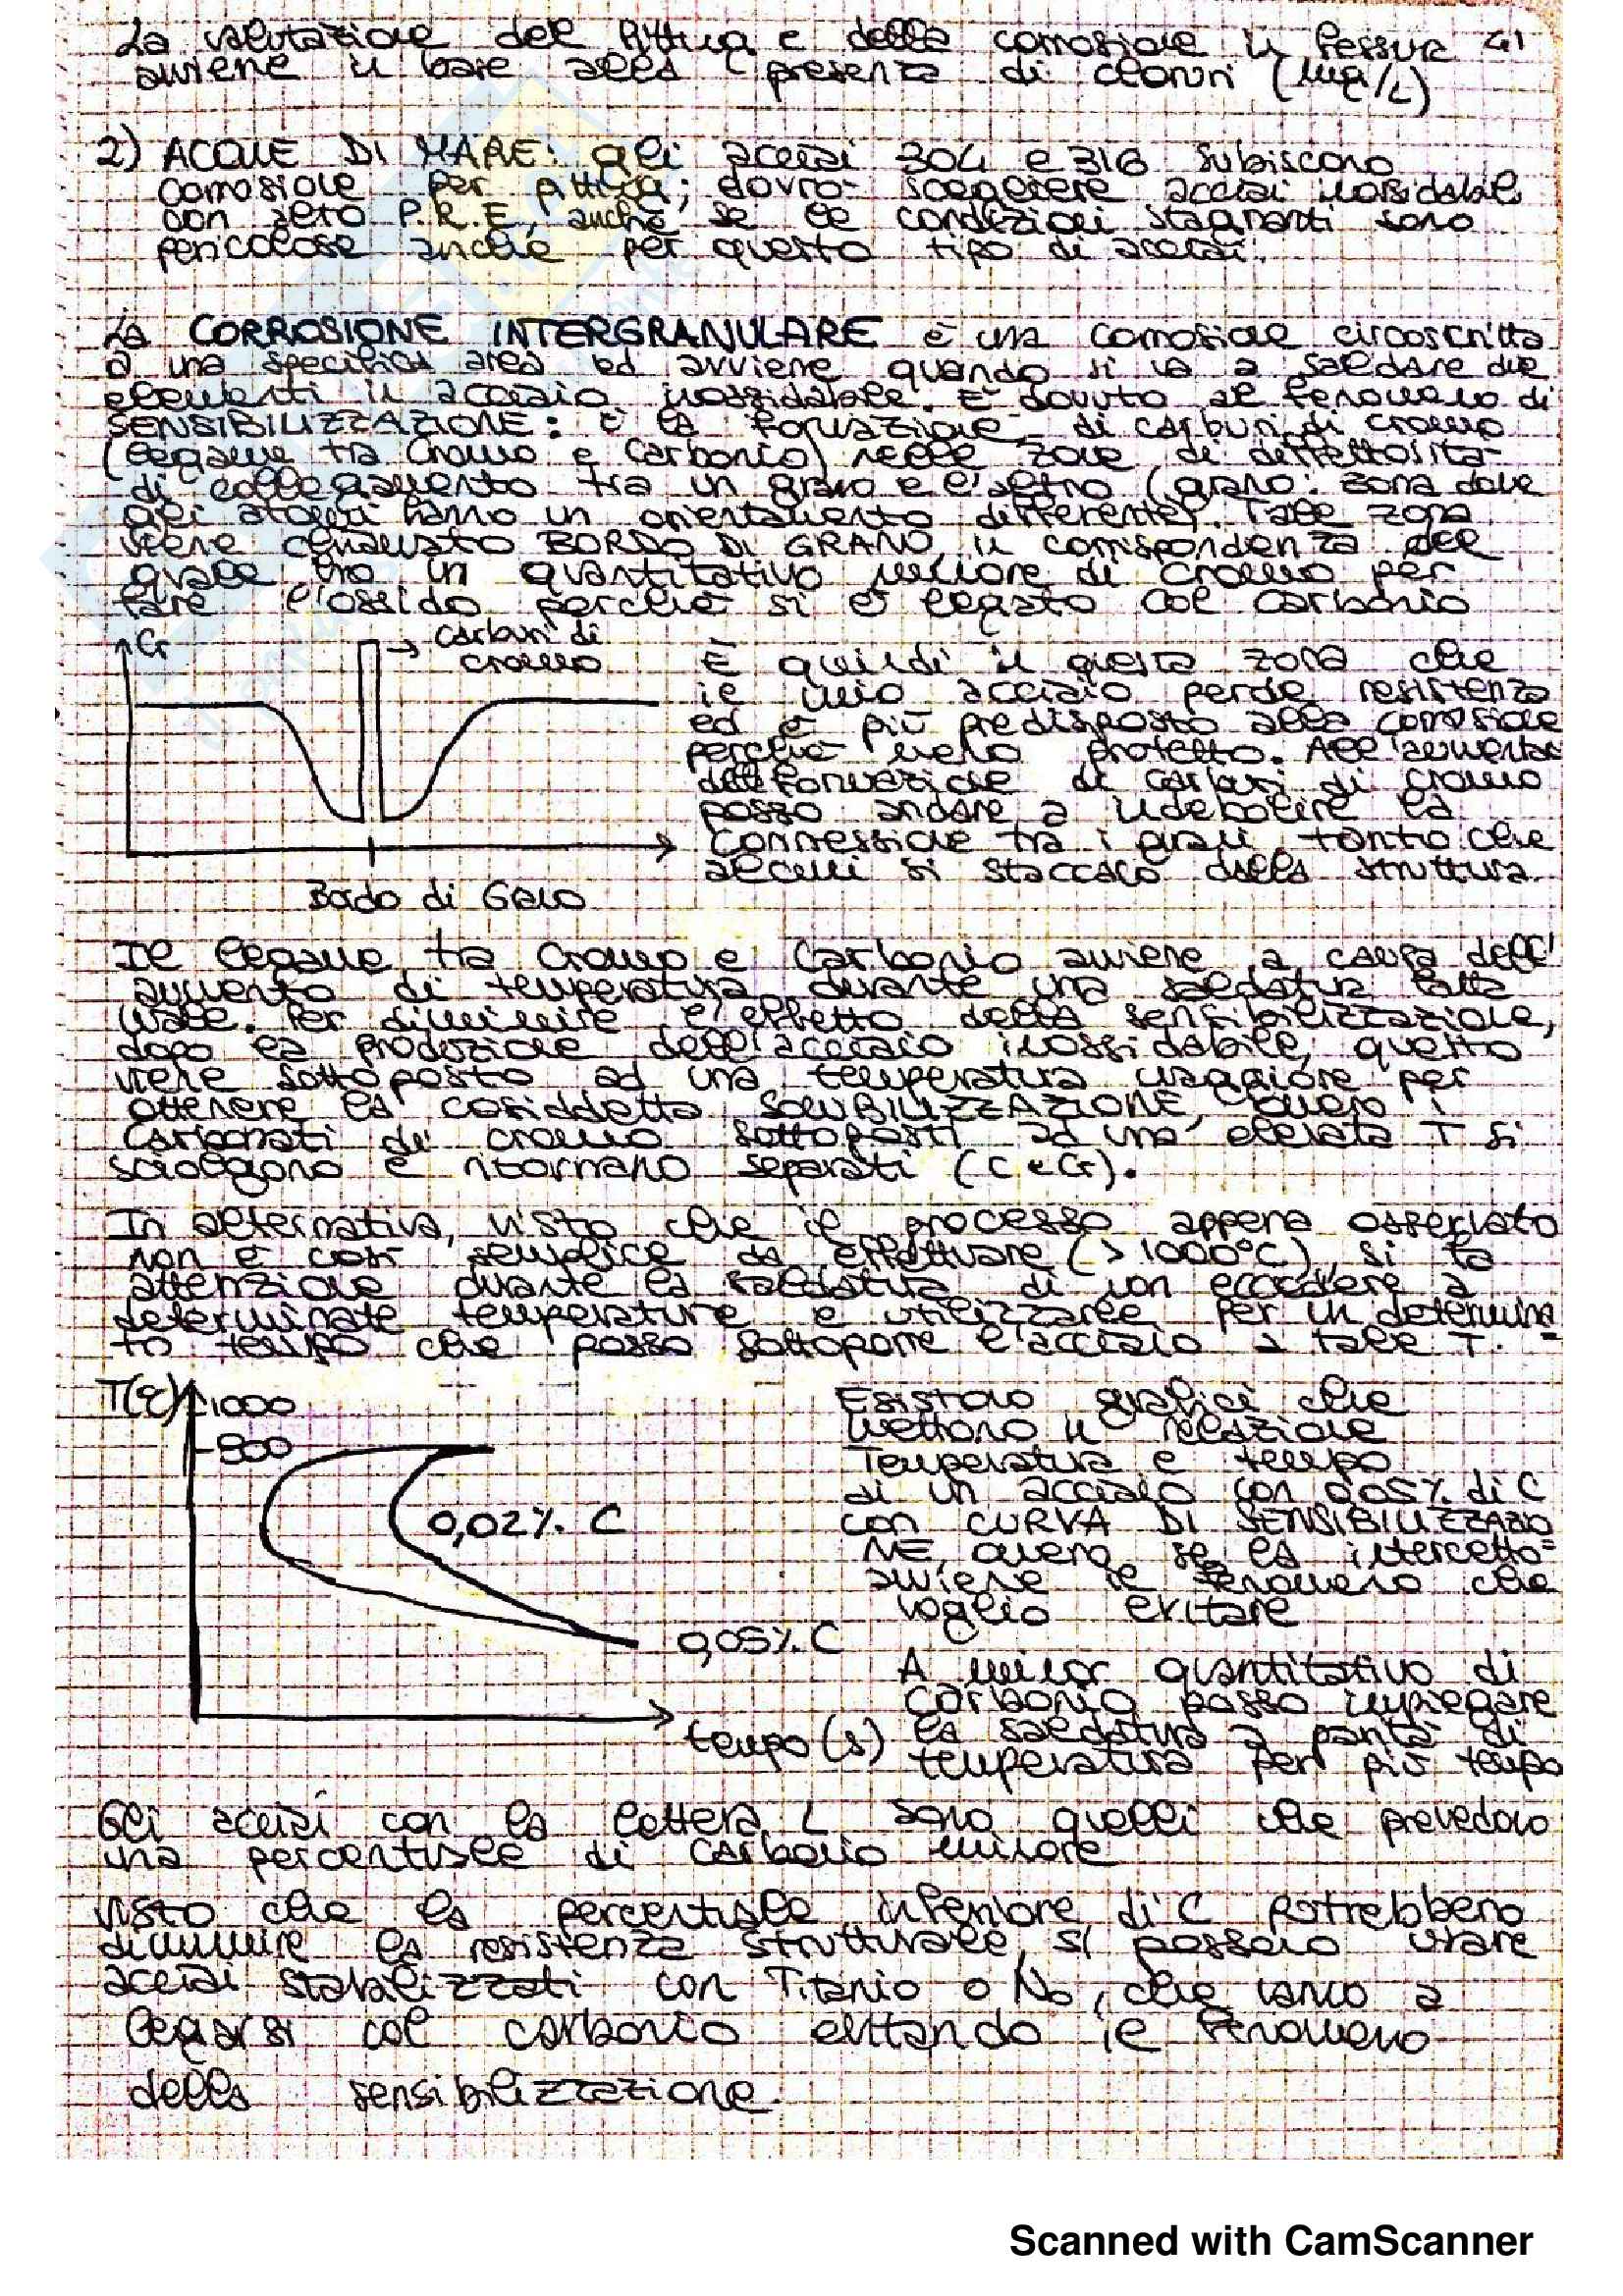 La valutazione del Pitting e della corrosione in fessura 41
avviene in base alla presenza di cloruri (mg/L)
2) ACQUE DI MARE: gli acciai 304 e 316 subiscono
corrosione per pitting; dovrò scegliere acciai inossidabili
con alto P.R.E, anche se le condizioni stagnanti sono
pericolose anche per questo tipo di acciai.
La CORROSIONE INTERGRANULARE è una corrosione circoscritta
a una specifica area ed avviene quando si va a saldare due
elementi in acciaio inossidabile. È dovuto al fenomeno di
SENSIBILIZZAZIONE: è la formazione di carburi di cromo
(legame tra Cromo e Carbonio) nelle zone di difettosità
di collegamento tra un grano e l'altro (grano: zona dove
gli atomi hanno un orientamento differente). Tale zona
viene chiamato BORDO DI GRANO, in corrispondenza del
quale ho un quantitativo minore di cromo per
fare l'ossido perché si è legato col carbonio
Cr
carburi di
cromo
È quindi in questa zona che
il mio acciaio perde resistenza
ed è più predisposto alla corrosione
perché meno protetto. All'aumentare
della formazione di carburi di cromo
posso andare a indebolire la
connessione tra i grani, tanto che
alcuni si staccano dalla struttura.
Bordo di Grano
Il legame tra Cromo e Carbonio avviene a causa dell'
aumento di temperatura durante una saldatura fatta
male. Per diminuire l'effetto della sensibilizzazione,
dopo la produzione dell'acciaio inossidabile, questo
viene sottoposto ad una temperatura maggiore per
ottenere la cosiddetta SOLUBILIZZAZIONE, ovvero i
Carbonati di cromo sottoposti ad una elevata T si
sciolgono e ritornano separati (C e Cr).
In alternativa, visto che il processo appena osservato
non è così semplice da effettuare (>1000°C), si fa
attenzione durante la saldatura di non eccedere a
determinate temperature e utilizzarle per un determina=
to tempo che posso sottoporre l'acciaio a tale T.
T(°C) 1000
900
0,02% C
0,05% C
tempo (s)
Esistono grafici che
mettono in relazione
Temperatura e tempo
di un acciaio con 0,05% di C
con CURVA DI SENSIBILIZZAZIO
NE, ovvero se la intercetto=
avviene il fenomeno che
voglio evitare
A minor quantitativo di
carbonio posso impiegare
la saldatura a parità di
temperatura per più tempo
Gli acciai con la lettera L sono quelli che prevedono
una percentuale di carbonio minore
Visto che la percentuale inferiore di C potrebbero
diminuire la resistenza strutturale, si possono usare
acciai stabilizzati con Titanio o Nb, che vanno a
legarsi col carbonio evitando il fenomeno
della sensibilizzazione.
Scanned with CamScanner